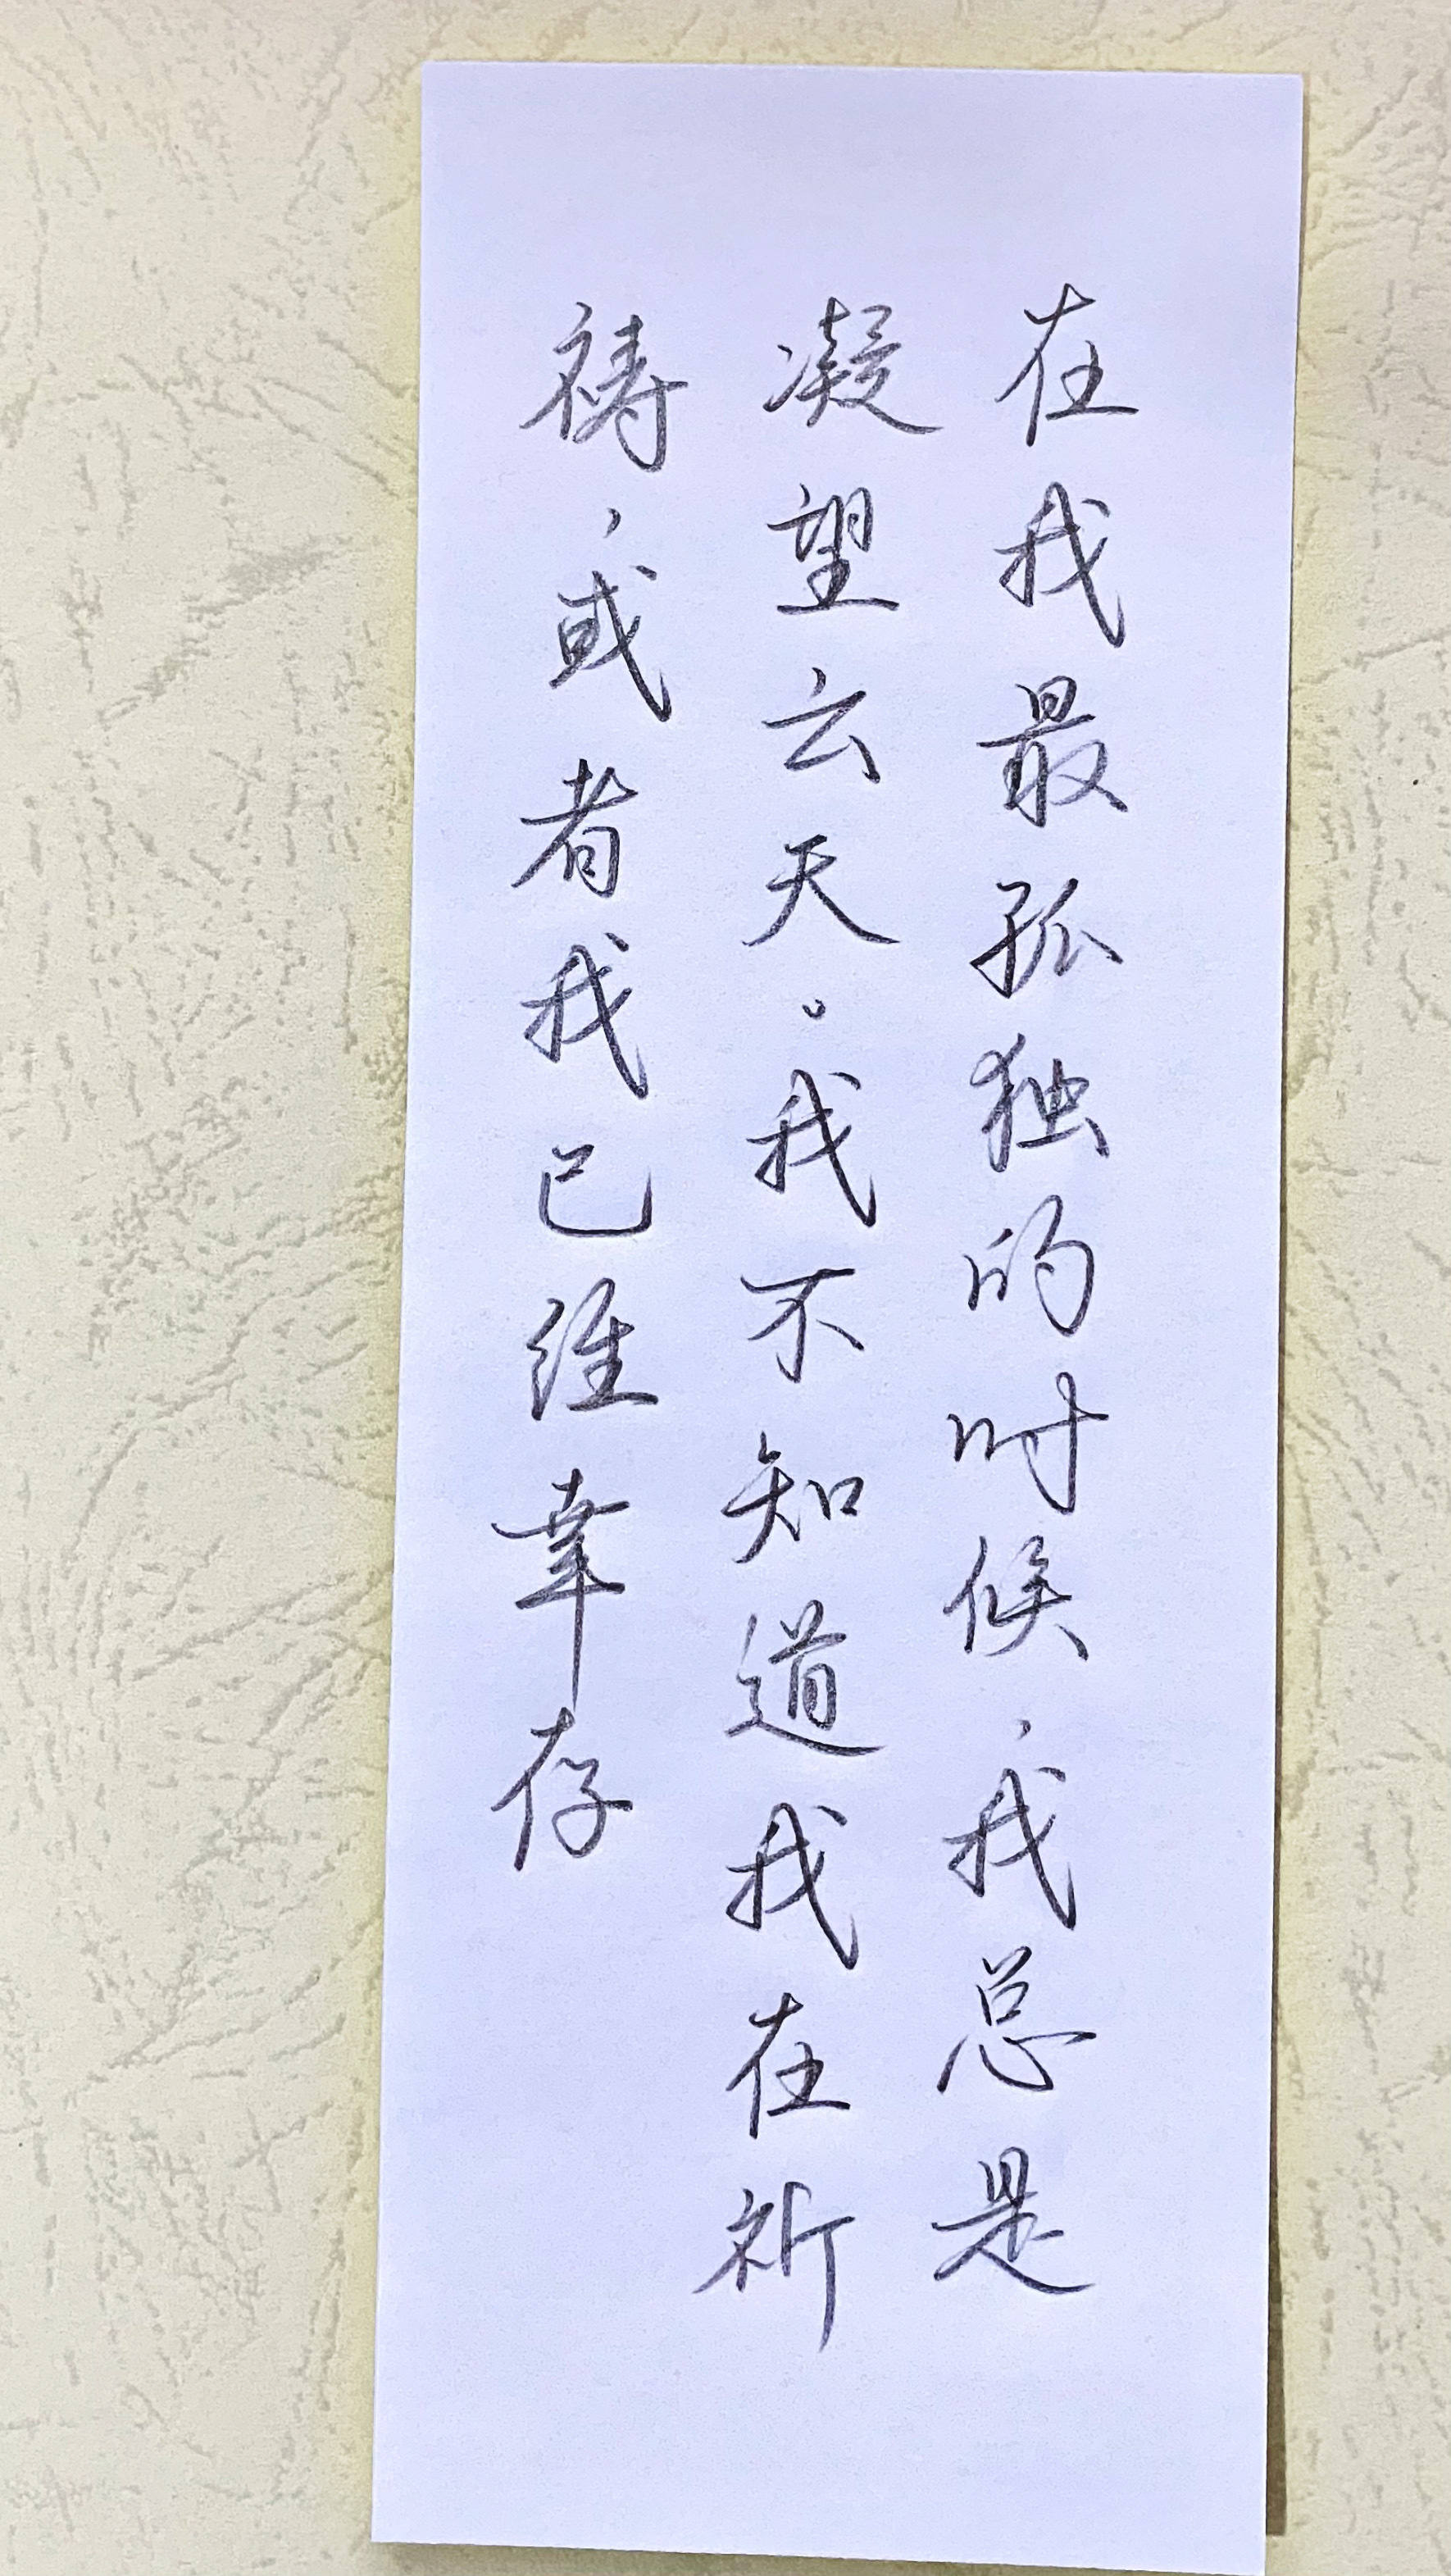 在我最孤独的时候，我总是
凝望云天。我不知道我在祈
祷，或者我已经幸存